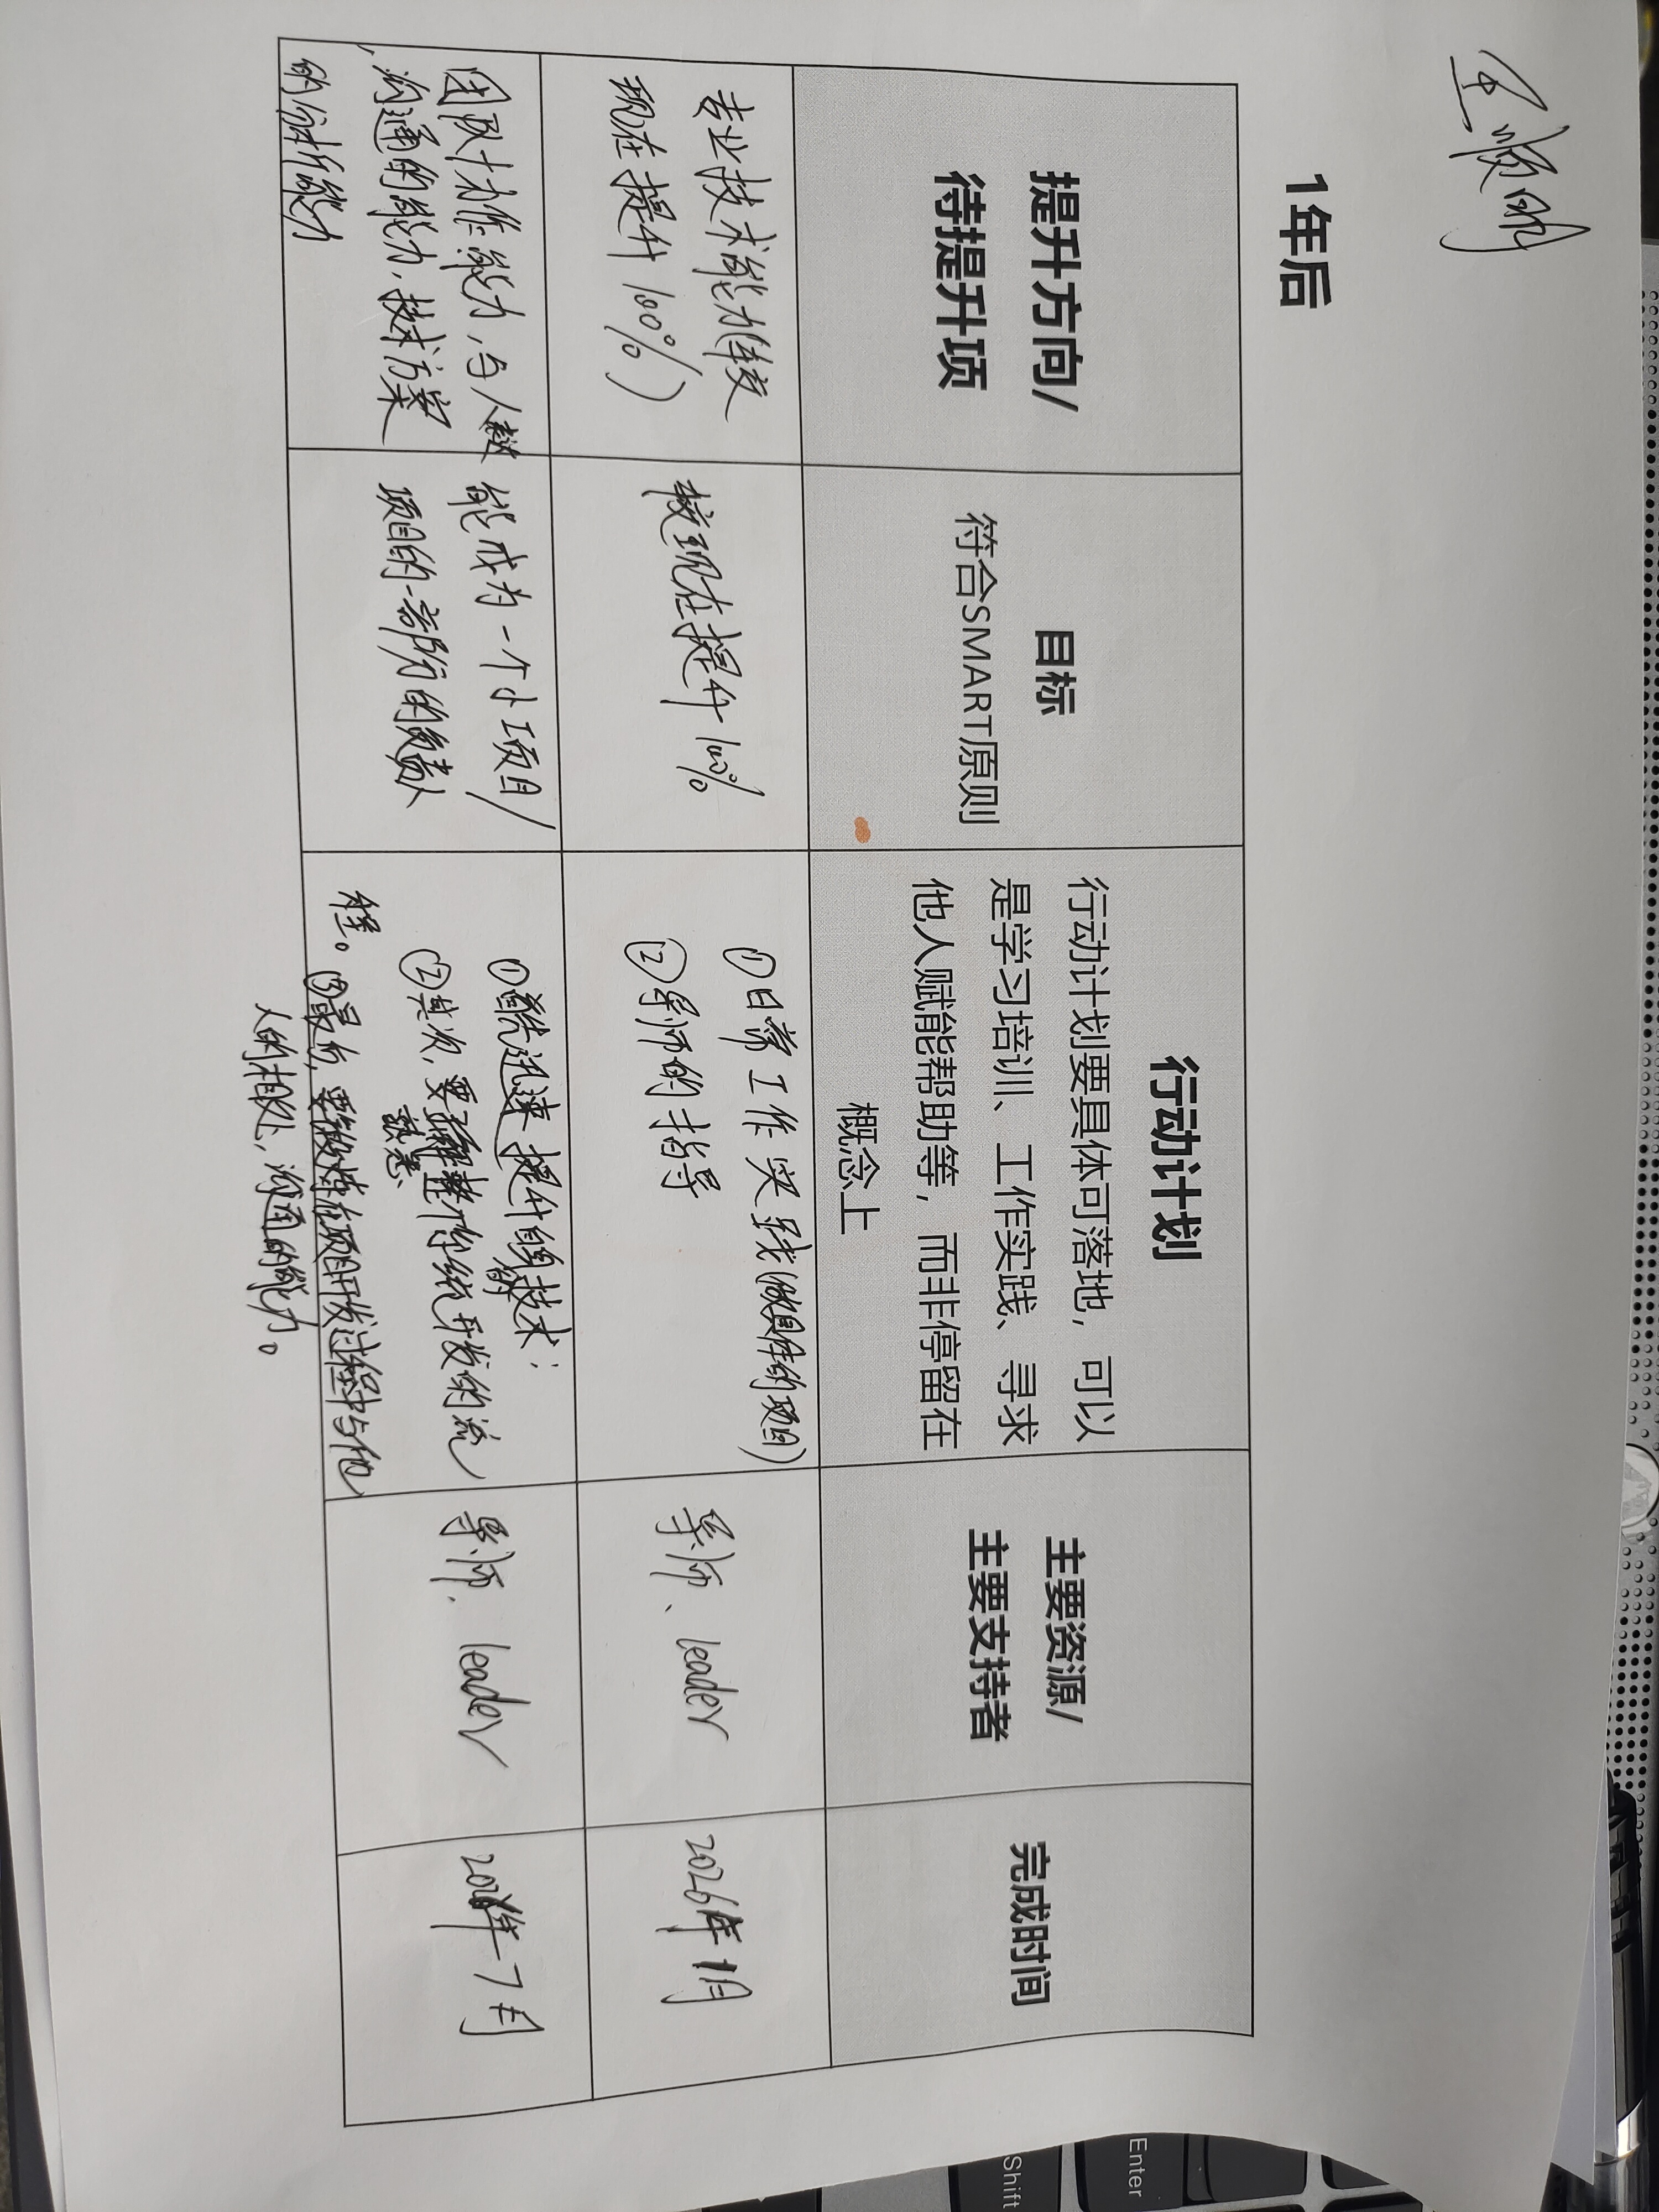 王顺明
1年后
提升方向/
待提升项
目标
符合SMART原则
行动计划
行动计划要具体可落地，可以
是学习培训、工作实践、寻求
他人赋能帮助等，而非停留在
概念上
主要资源/
主要支持者
完成时间
专业技术能力(较
现在提升100%)
较现在提升100%
①日常工作实践(做具体的项目)
②导师的指导
导师、leader
2026年1月
团队协作能力,与人
沟通的能力,技术方案
的分析能力
能成为一个小项目/
项目的一部分的负责人
①首先迅速提升自身的技术；
②其次,要熟悉整个系统开发的流
程。③最后,要锻炼在项目开发过程中与他
人的相处、沟通的能力。
导师、leader
2026年7月
Enter
Shift